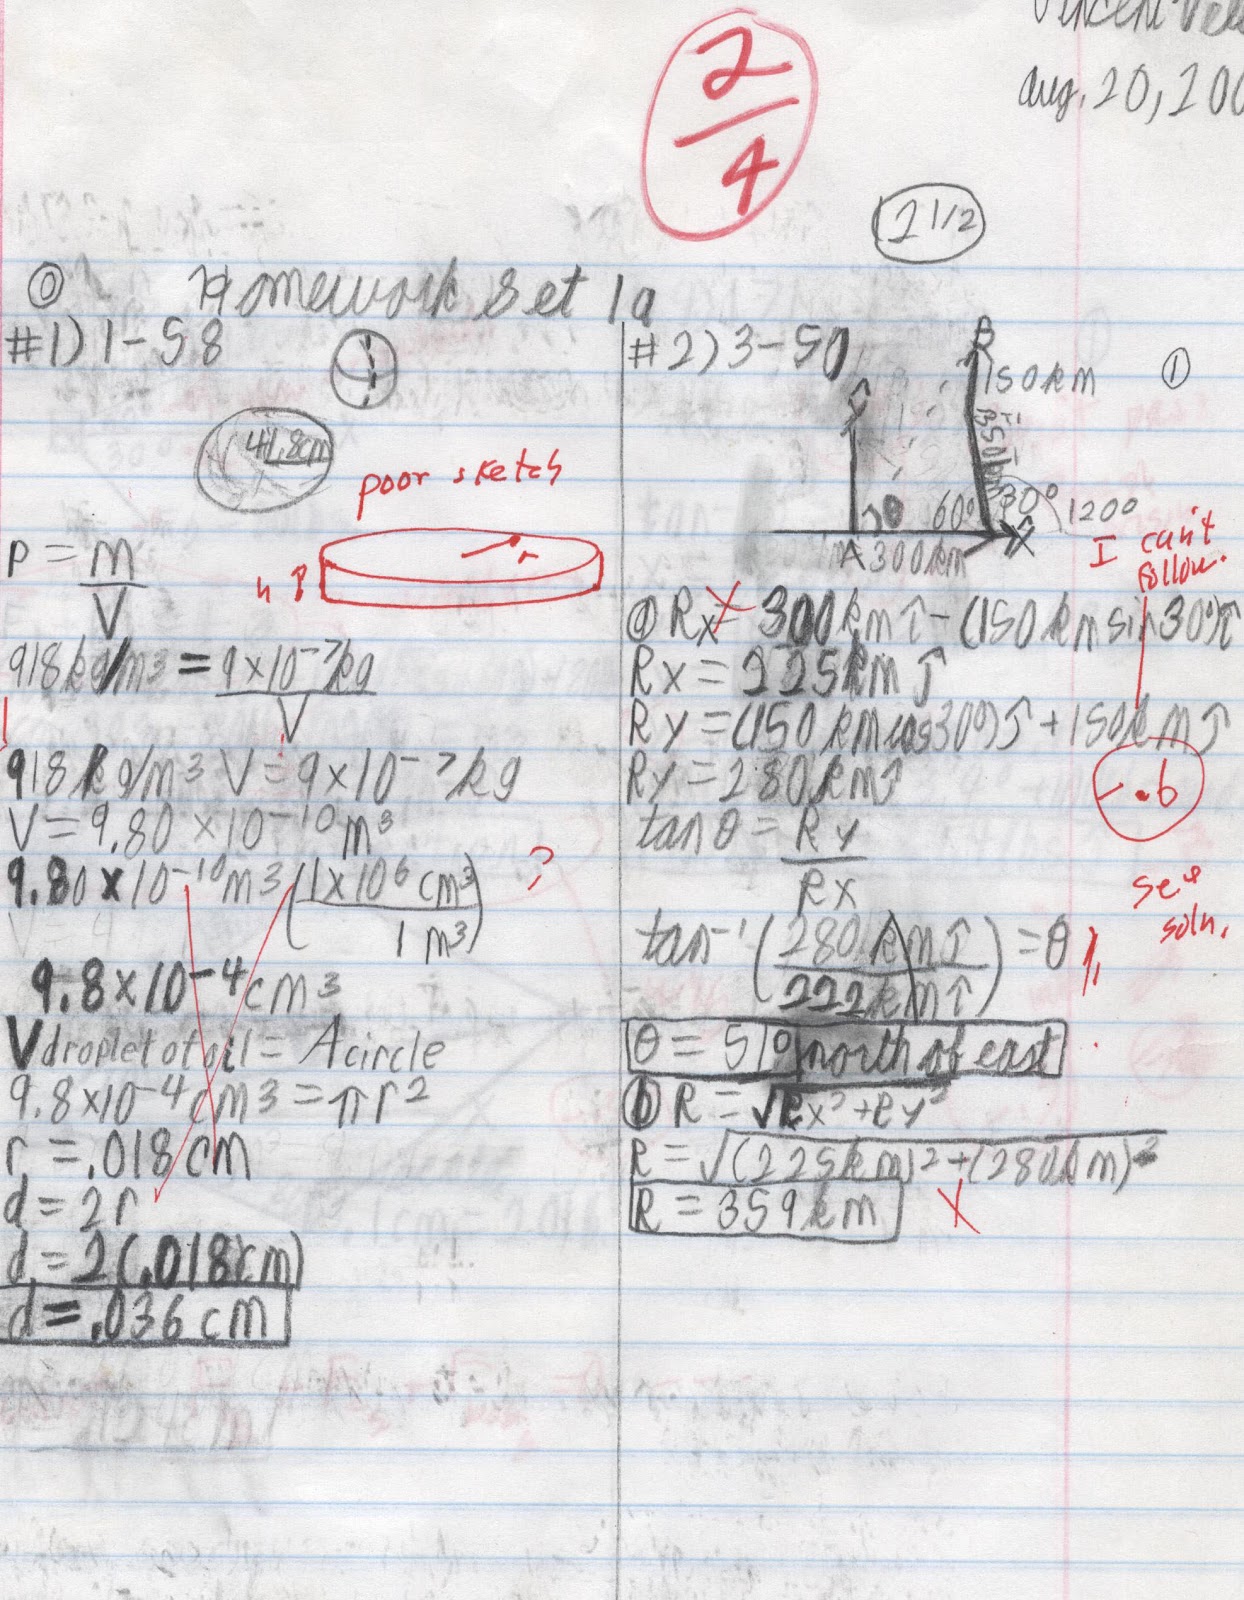 Aug. 20, 200
2/4
2 1/2
0
Homework Set 1a
#1) 1-58
41.8cm
poor sketch
h
r
ρ = m/V
918kg/m3 = 9x10-7kg/V
918kg/m3 V = 9x10-7kg
V = 9.80 x 10-10 m3
9.80 x 10-10 m3 (1x106 cm3/1 m3) ?
9.8x10-4 cm3
V droplet of oil = A circle
9.8x10-4 cm3 = πr2
r = .018 cm
d = 2r
d = 2(.018cm)
d = .036 cm
#2) 3-50
1
R
150km
ŷ
θ
60° 30° 120°
x̂
A 300km
I can't
follow.
a) Rx = 300km î - (150km sin30°) î
Rx = 225km î
Ry = (150km cos30°) ĵ + 150km ĵ
Ry = 280km ĵ
-.6
tan θ = Ry/Rx
see
soln.
tan-1 (280km ĵ/222km î) = θ
θ = 51° north of east
b) R = √Rx2 + Ry2
R = √(225km)2 + (280km)2
R = 359km
X